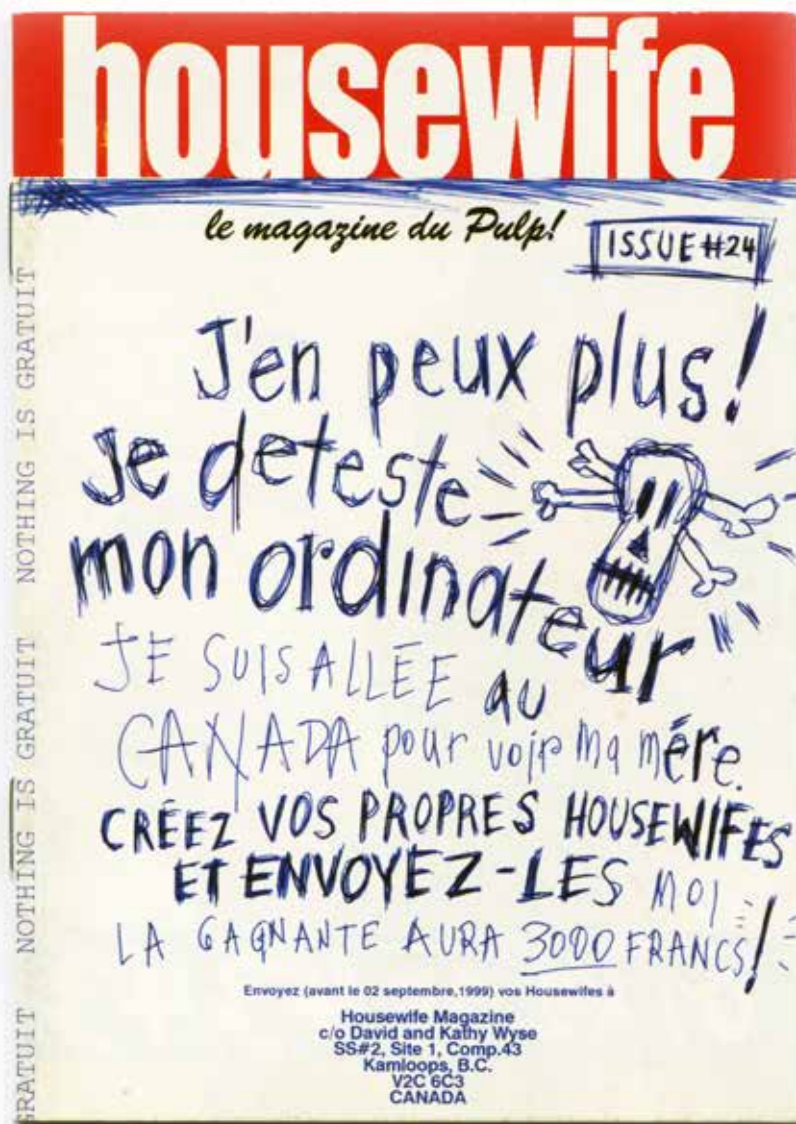 housewife
le magazine du Pulp!
ISSUE #24
J'en peux plus!
Je deteste
mon ordinateur
JE SUIS ALLÉE au
CANADA pour voir ma mère.
CRÉEZ VOS PROPRES HOUSEWIFES
ET ENVOYEZ-LES MOI
LA GAGNANTE AURA 3000 FRANCS!
Envoyez (avant le 02 septembre,1999) vos Housewifes à
Housewife Magazine
c/o David and Kathy Wyse
SS#2, Site 1, Comp.43
Kamloops, B.C.
V2C 6C3
CANADA
GRATUIT NOTHING IS GRATUIT NOTHING IS GRATUIT